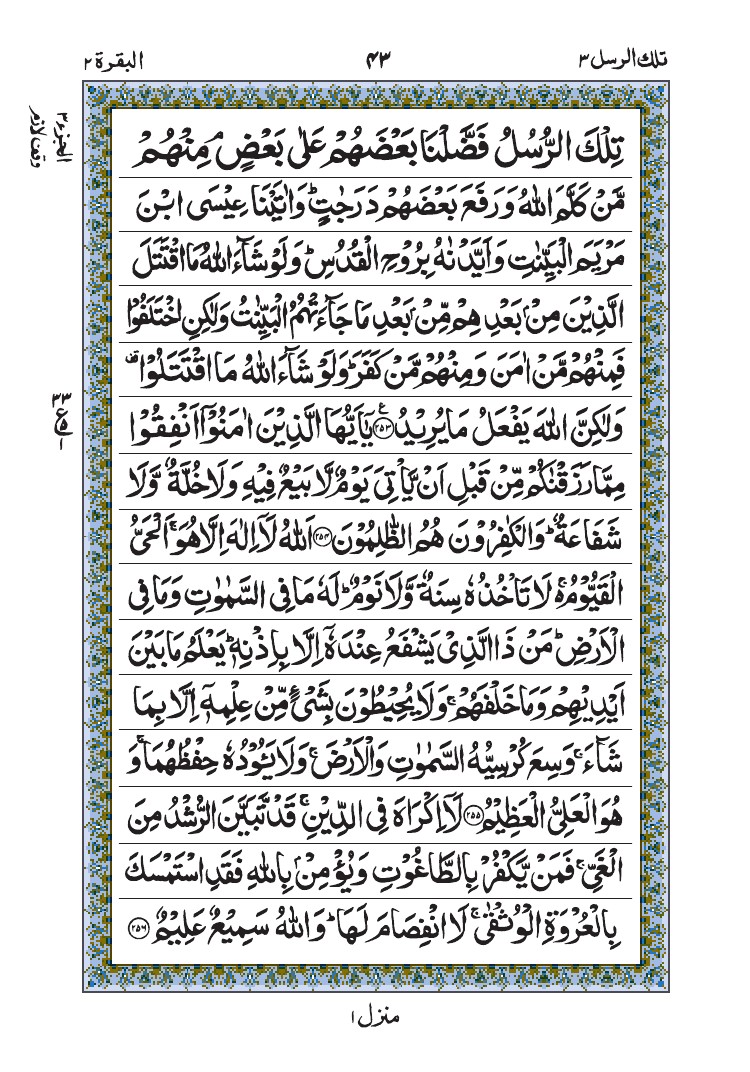 تلك الرسل ۳
۴۳
البقرة ۲
الجزء ۳
وقف لازم
تِلْكَ الرُّسُلُ فَضَّلْنَا بَعْضَهُمْ عَلٰى بَعْضٍ ۘ مِنْهُمْ
مَّنْ كَلَّمَ اللّٰهُ وَرَفَعَ بَعْضَهُمْ دَرَجٰتٍ ؕ وَاٰتَيْنَا عِيْسَى ابْنَ
مَرْيَمَ الْبَيِّنٰتِ وَاَيَّدْنٰهُ بِرُوْحِ الْقُدُسِ ؕ وَلَوْ شَآءَ اللّٰهُ مَا اقْتَتَلَ
الَّذِيْنَ مِنْۢ بَعْدِهِمْ مِّنْۢ بَعْدِ مَا جَآءَتْهُمُ الْبَيِّنٰتُ وَلٰكِنِ اخْتَلَفُوْا
فَمِنْهُمْ مَّنْ اٰمَنَ وَمِنْهُمْ مَّنْ كَفَرَ ؕ وَلَوْ شَآءَ اللّٰهُ مَا اقْتَتَلُوْا ۫
وَلٰكِنَّ اللّٰهَ يَفْعَلُ مَا يُرِيْدُ ﴿۲۵۳﴾ ع يٰۤاَيُّهَا الَّذِيْنَ اٰمَنُوْۤا اَنْفِقُوْا
۳۳
ع
۱
مِمَّا رَزَقْنٰكُمْ مِّنْ قَبْلِ اَنْ يَّاْتِيَ يَوْمٌ لَّا بَيْعٌ فِيْهِ وَلَا خُلَّةٌ وَّلَا
شَفَاعَةٌ ؕ وَالْكٰفِرُوْنَ هُمُ الظّٰلِمُوْنَ ﴿۲۵۴﴾ اَللّٰهُ لَاۤ اِلٰهَ اِلَّا هُوَ ۚ اَلْحَيُّ
الْقَيُّوْمُ ۚ لَا تَاْخُذُهٗ سِنَةٌ وَّلَا نَوْمٌ ؕ لَهٗ مَا فِي السَّمٰوٰتِ وَمَا فِي
الْاَرْضِ ؕ مَنْ ذَا الَّذِيْ يَشْفَعُ عِنْدَهٗۤ اِلَّا بِاِذْنِهٖ ؕ يَعْلَمُ مَا بَيْنَ
اَيْدِيْهِمْ وَمَا خَلْفَهُمْ ۚ وَلَا يُحِيْطُوْنَ بِشَيْءٍ مِّنْ عِلْمِهٖۤ اِلَّا بِمَا
شَآءَ ۚ وَسِعَ كُرْسِيُّهُ السَّمٰوٰتِ وَالْاَرْضَ ۚ وَلَا يَـُٔوْدُهٗ حِفْظُهُمَا ۚ وَ
هُوَ الْعَلِيُّ الْعَظِيْمُ ﴿۲۵۵﴾ لَاۤ اِكْرَاهَ فِي الدِّيْنِ ۚ قَدْ تَّبَيَّنَ الرُّشْدُ مِنَ
الْغَيِّ ۚ فَمَنْ يَّكْفُرْ بِالطَّاغُوْتِ وَيُؤْمِنْۢ بِاللّٰهِ فَقَدِ اسْتَمْسَكَ
بِالْعُرْوَةِ الْوُثْقٰى ۚ لَا انْفِصَامَ لَهَا ؕ وَاللّٰهُ سَمِيْعٌ عَلِيْمٌ ﴿۲۵۶﴾
منزل ۱